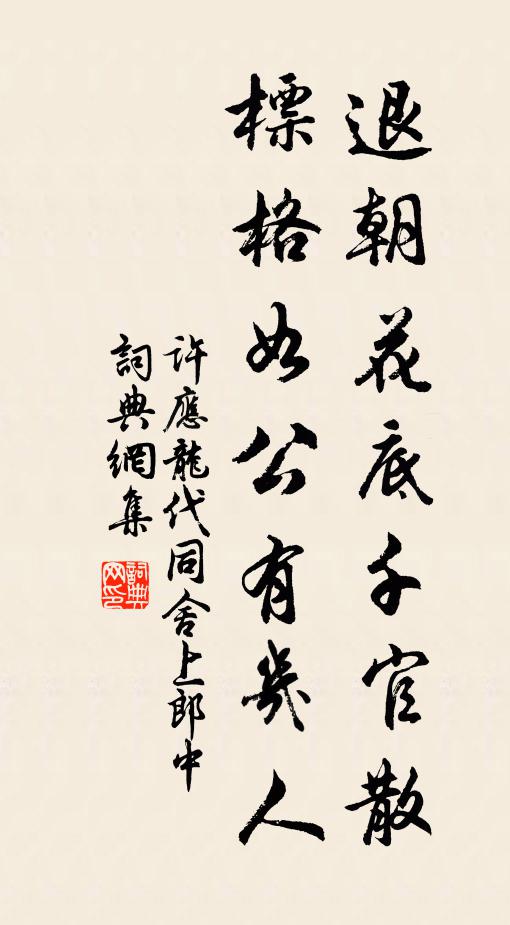 退朝花底千官散
標格如公有幾人
許應龍代同舍上郎中
詞典網集
詞典网印